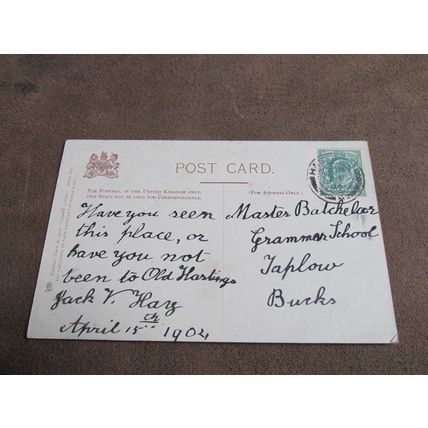 POST CARD.
FOR POSTAGE IN THE UNITED KINGDOM ONLY,
THIS SPACE MAY BE USED FOR CORRESPONDENCE.
(FOR ADDRESS ONLY.)
Have you seen
this place, or
have you not
been to Old Hastings
Jack V. Hay
April 15th 1904
Master Batchelar
Grammar School
Taplow
Bucks